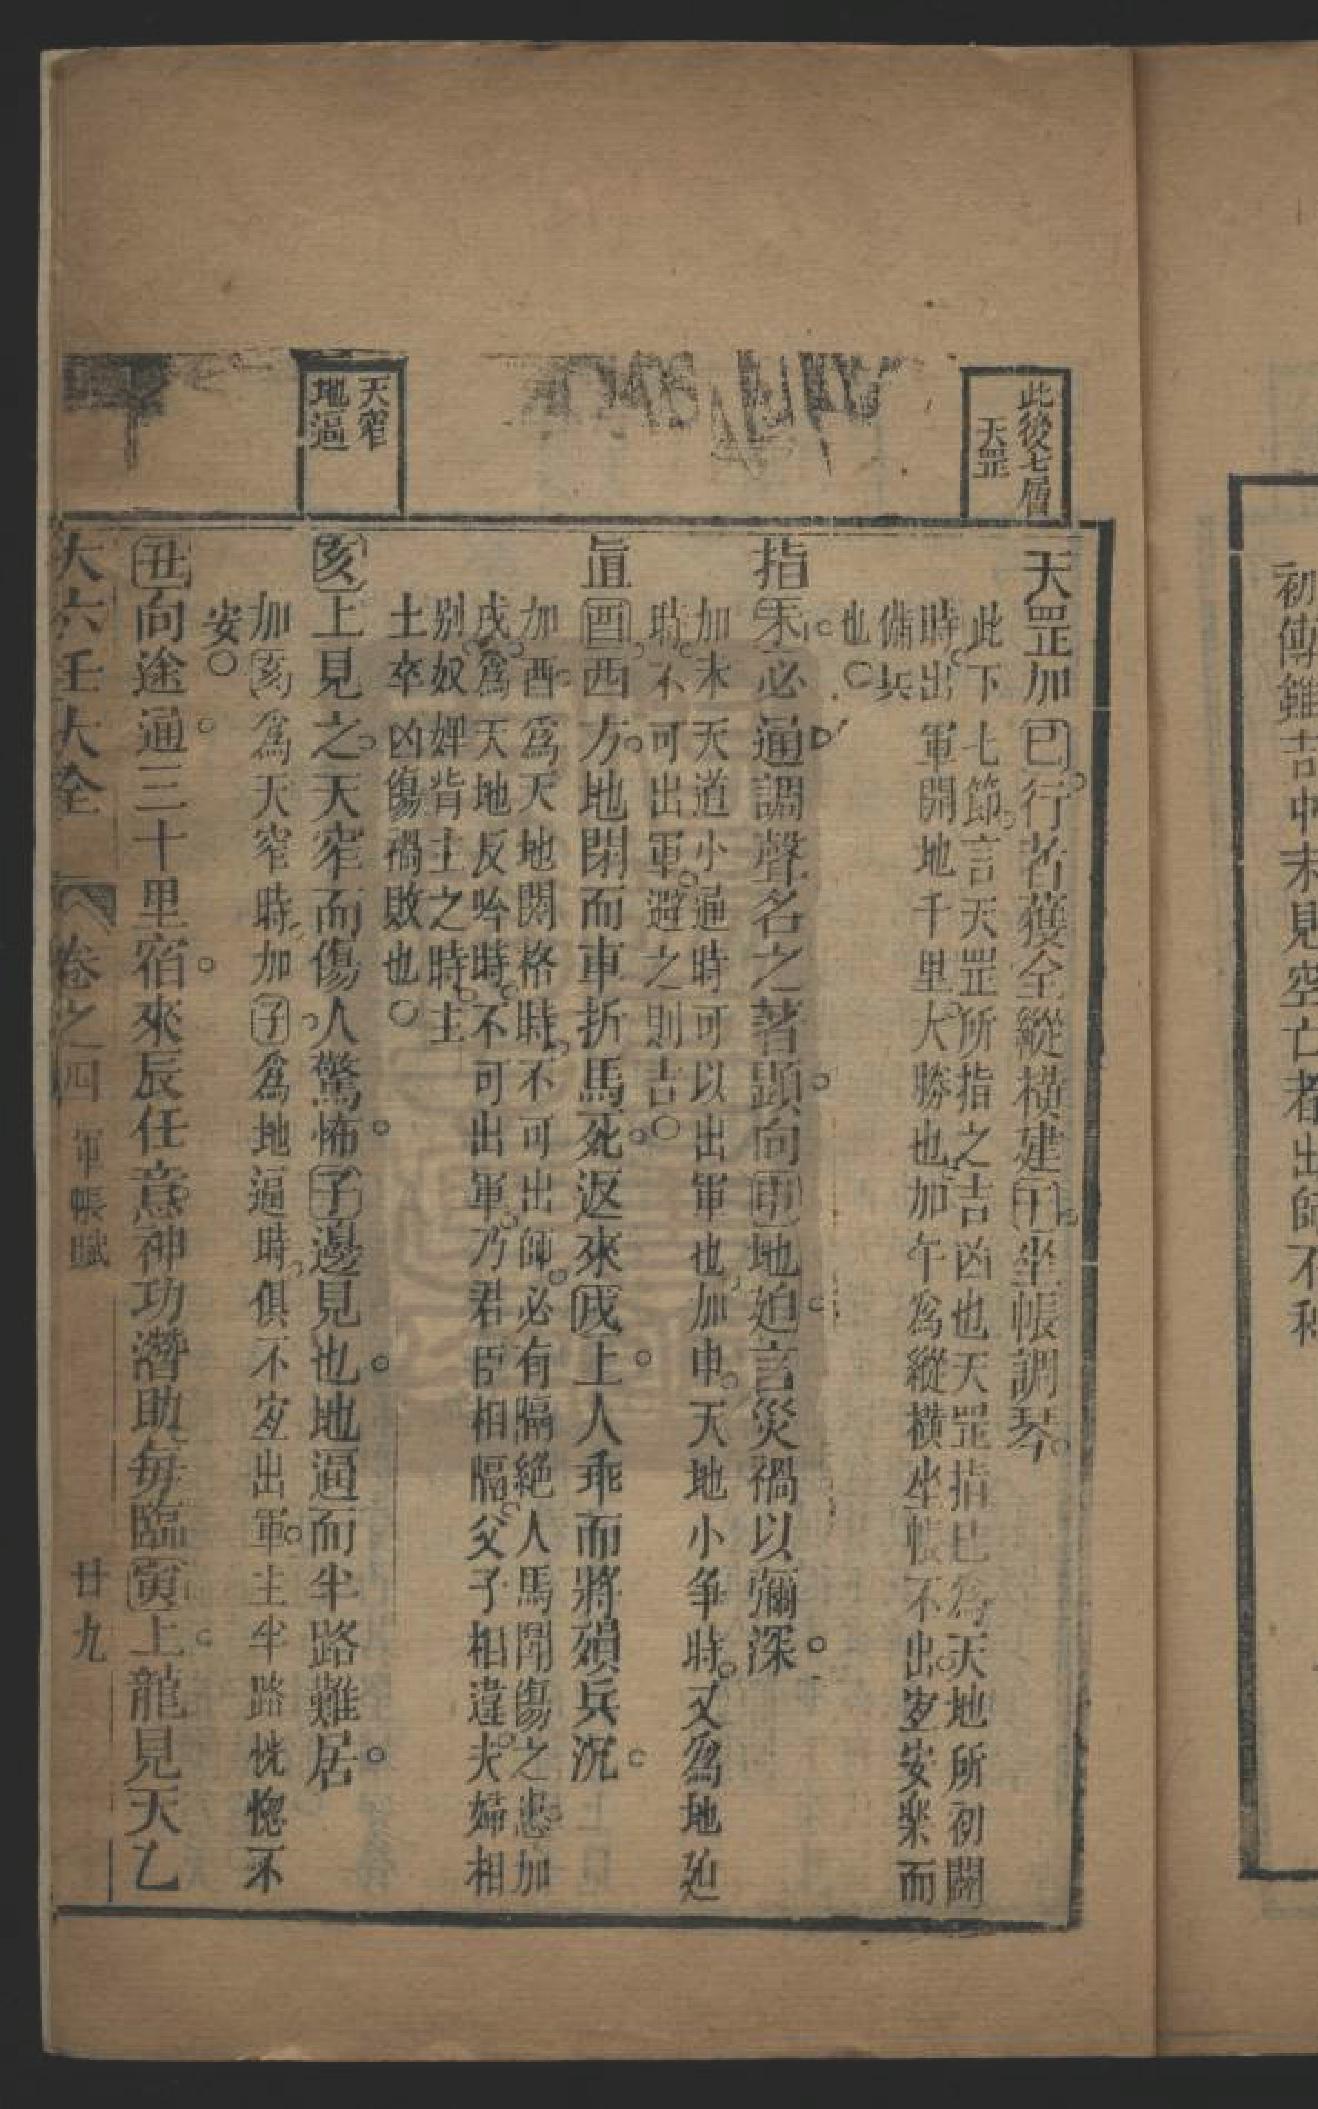 初傳雖吉中末見空亡者出師不利
此後七層
天罡
天罡加巳行者獲全縱橫建午坐帳調琴
此下七節言天罡所指之吉凶也天罡指巳為天地所初開
時出軍開地千里大勝也加午為縱橫坐帳不出宜安樂而
備兵
也
指未必通調聲名之著顯向申地廹言災禍以彌深
加未天道小通時可以出軍也加申天地小爭時又為地廹
時不可出軍避之則吉
眞酉西方地閉而車折馬死返來戌上人乖而將殞兵沉
加酉為天地関格時不可出師必有隔絶人馬閉傷之患加
戌為天地反吟時不可出軍乃君臣相隔父子相違夫婦相
别奴婢背主之時主
士卒凶傷禍敗也
天窄
地逼
亥上見之天窄而傷人驚怖子邊見也地逼而半路難居
加亥為天窄時加子為地逼時俱不宜出軍主半路恍惚不
安
丑向途通三十里宿來辰任意神功潛助每臨寅上龍見天乙
大六壬大全 卷之四 軍帳賦 廿九